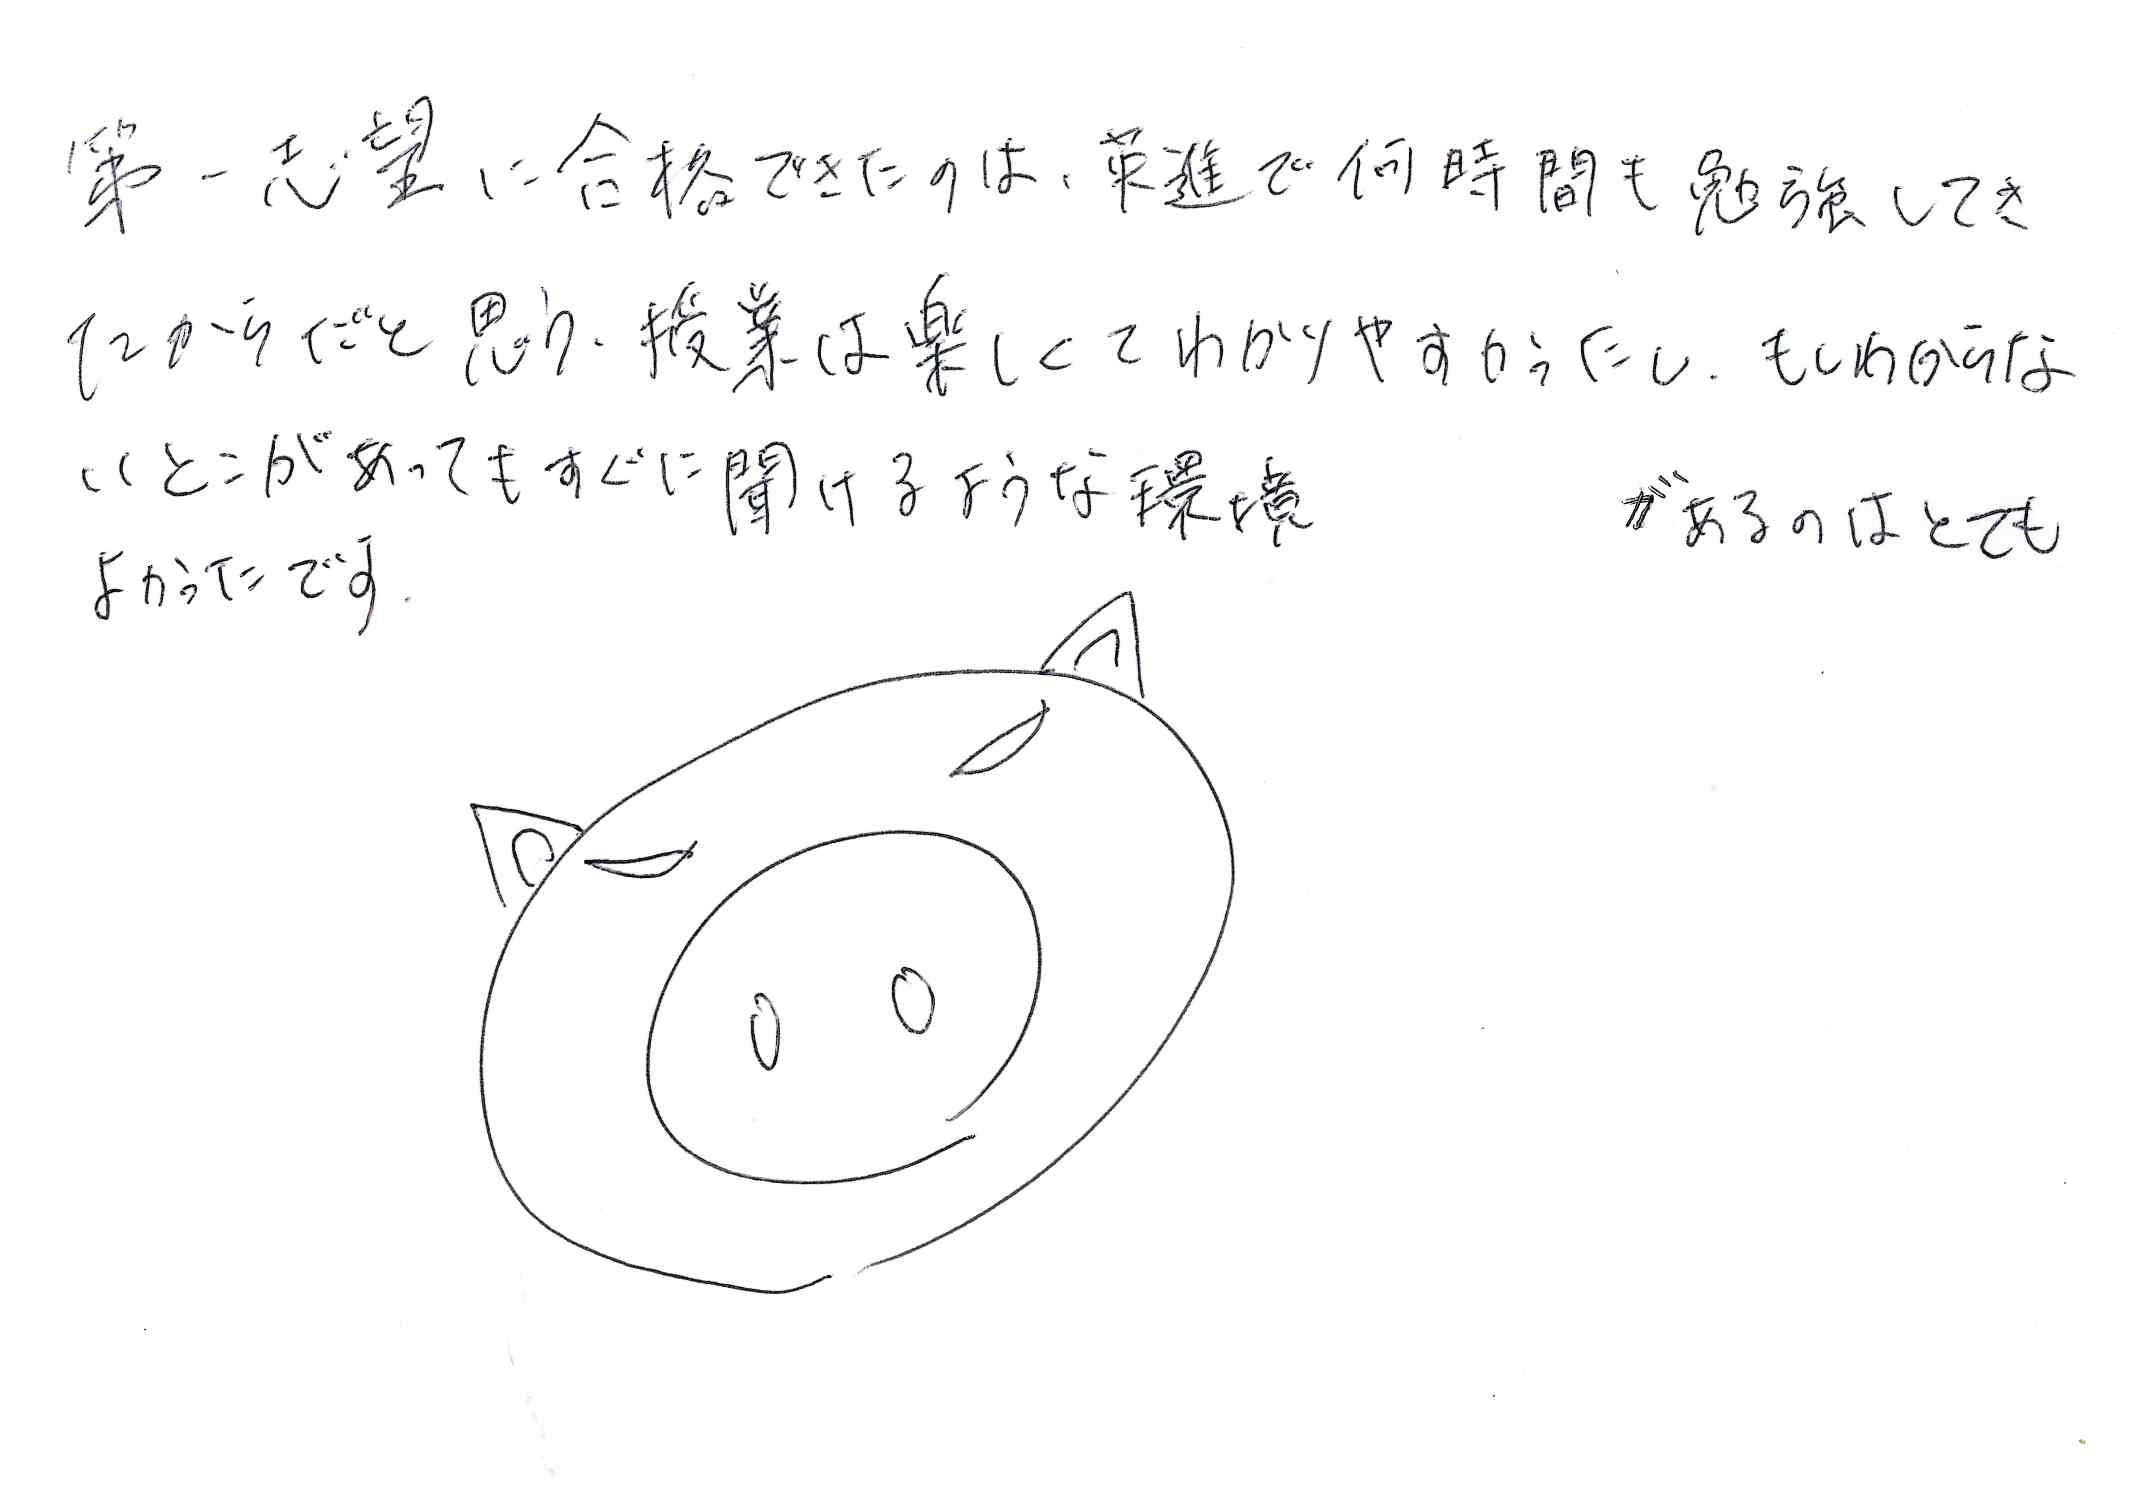 第一志望に合格できたのは、英進で何時間も勉強してき
たからだと思う。授業は楽しくてわかりやすかったし、もしわからな
いとこがあってもすぐに聞けるような環境 があるのはとても
よかったです。